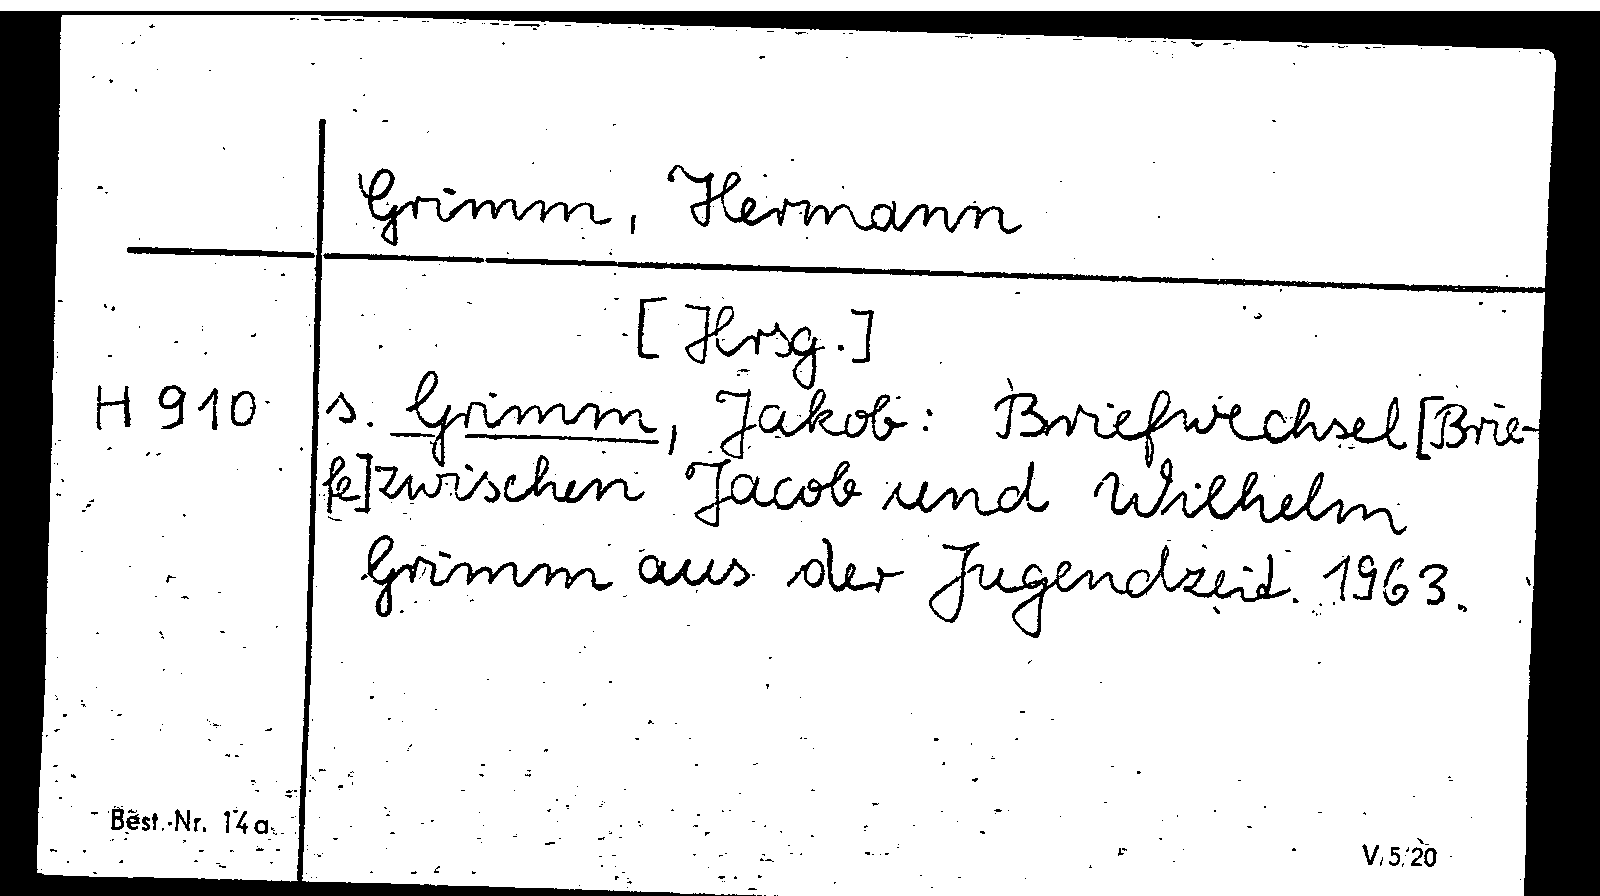 Grimm, Hermann
[Hrsg.]
H 910 s. Grimm, Jakob: Briefwechsel [Brie-
fe] zwischen Jacob und Wilhelm
Grimm aus der Jugendzeit. 1963.
Best.-Nr. 14a
V/5/20